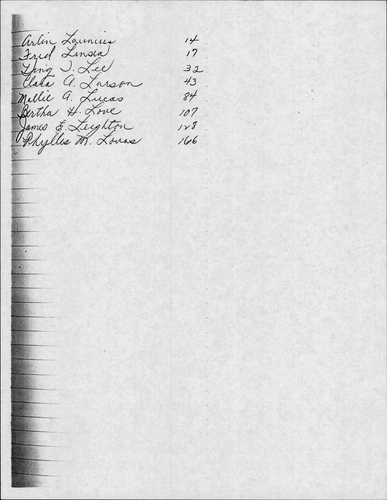 Arlin Launius 14
Fred Linsea 17
Ling J. Lee 32
Clara A. Larson 43
Mellie A. Lucas 84
Bertha H. Love 107
James E. Leighton 128
Phyllis M. Lovas 166